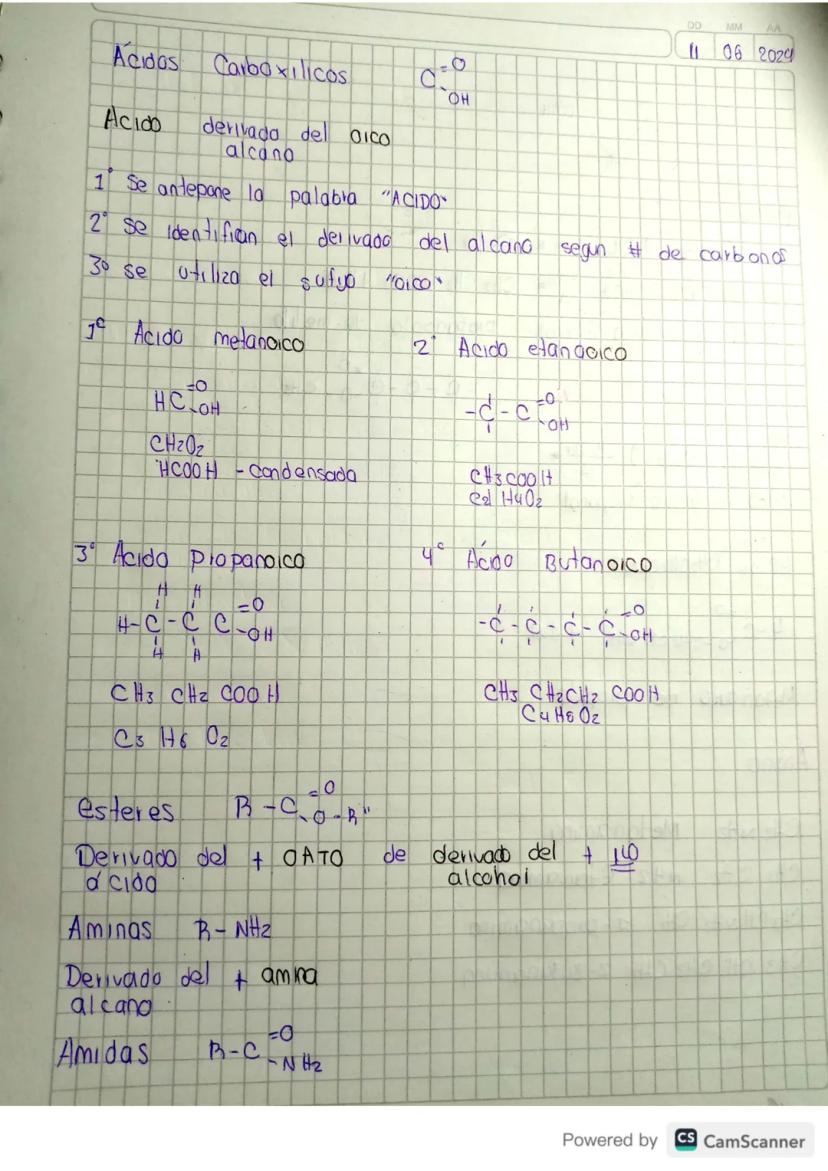 DD MM AA
11 06 2024
Ácidos Carboxilicos C=O -OH
Acido derivado del oico
alcano
1° Se antepone la palabra "ACIDO"
2° Se identifian el derivado del alcano segun # de carbonos
3° se utiliza el sufijo "oico"
1° Acido metanoico 2° Acido etanaoico
HC=O -OH
-C-C=O -OH
CH2O2
HCOOH - condensada
CH3COOH
C2H4O2
3° Acido Propanoico 4° Ácido Butanoico
H H
H-C-C C=O -OH
H H
-C-C-C-C=O -OH
CH3 CH2 COOH
CH3 CH2CH2 COOH
C4H8O2
C3 H6 O2
esteres R-C=O -O-R"
Derivado del + OATO de derivado del + ilo
ácido alcohol
Aminas R-NH2
Derivado del + amina
alcano
Amidas R-C=O -NH2
Powered by CS CamScanner